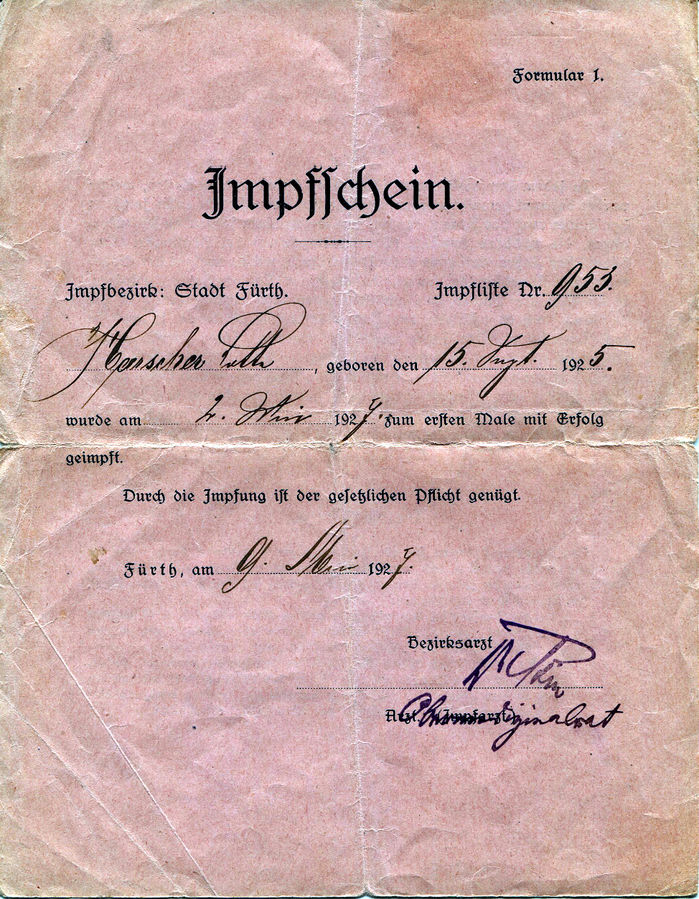 Formular 1.
Impfschein.
Impfbezirk: Stadt Fürth. Impfliste Nr. 953.
, geboren den 15. 1925.
wurde am 2. Mai 1927. zum ersten Male mit Erfolg
geimpft.
Durch die Impfung ist der gesetzlichen Pflicht genügt.
Fürth, am 9. Mai 1927.
Bezirksarzt